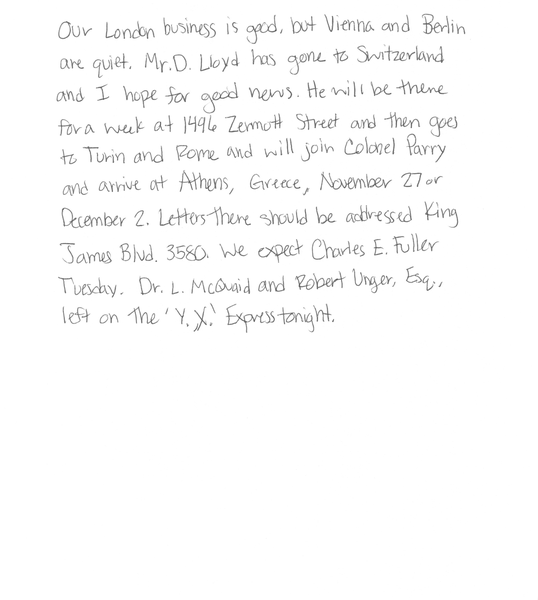 Our London business is good, but Vienna and Berlin
are quiet. Mr. D. Lloyd has gone to Switzerland
and I hope for good news. He will be there
for a week at 1496 Zermott Street and then goes
to Turin and Rome and will join Colonel Parry
and arrive at Athens, Greece, November 27 or
December 2. Letters there should be addressed King
James Blvd. 3580. We expect Charles E. Fuller
Tuesday. Dr. L. McQuaid and Robert Unger, Esq.,
left on the 'Y.X.' Express tonight.